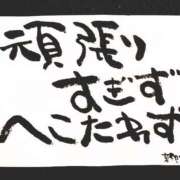 頑張り
すぎず
へこたれず